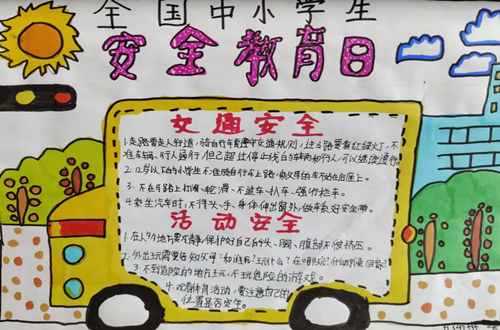 全国中小学生
安全教育日
交通安全
1.走路要走人行道,骑自行车要遵守交通规则,过马路要看红绿灯,不
准车辆、行人通行,但已超过停止线的车辆和行人,可以继续通行。
2.12岁以下的小学生不准骑自行车上路,乘父母的车不站在后座上。
3.不在马路上打闹、轮滑、不追车、扒车、强行拦车。
4.乘坐汽车时,不得将头、手、身体伸出窗外,做车系好安全带。
活动安全
1.在人多的地方要冷静,保护好自己的头、胸、腹部不被挤压。
2.外出玩需要告知父母:和谁玩?玩什么?在哪里玩?什么时候回家?
3.不到危险的地方玩,不玩危险的游戏。
4.观看体育活动,要注意自己的
位置是否安全。